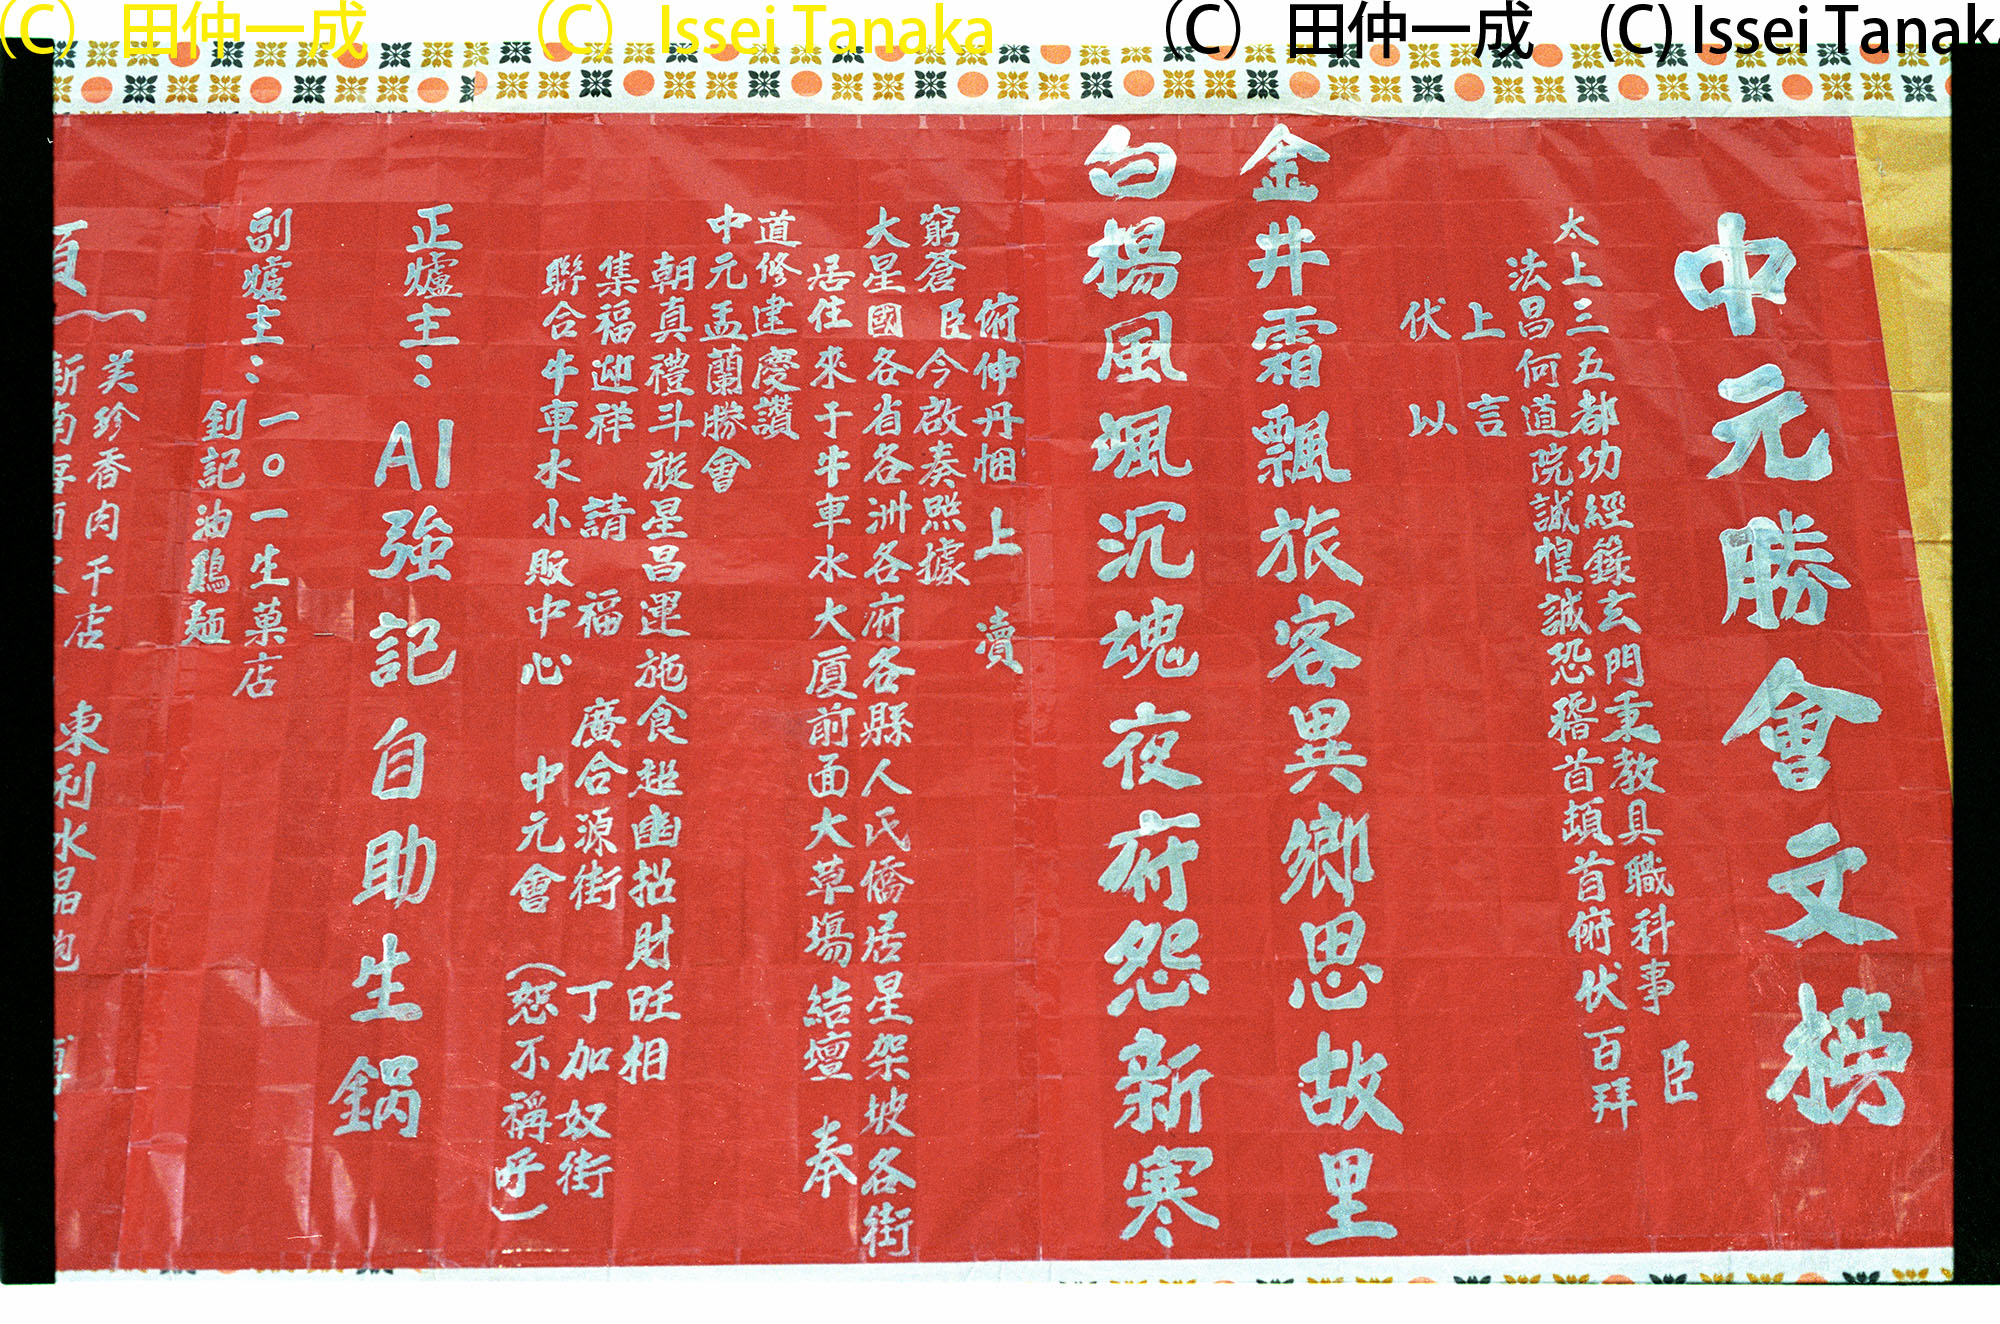 (C) 田仲一成
(C) Issei Tanaka
(C) 田仲一成
(C) Issei Tanaka
中元勝會文榜
太上三五都功經籙玄門秉教具職科事 臣
法昌何道院誠惶誠恐稽首頓首俯伏百拜
上言
伏以
金井霜飄旅客異鄉思故里
白楊風颯沉魂夜府怨新寒
俯伸丹悃 上瀆
窮蒼 臣今啟奏煕據
大星國各省各洲各府各縣人民僑居星架坡各街
居住來于牛車水大厦前面大草塲結壇 奉
道修建慶讚
中元盂蘭勝會
朝真禮斗旋星昌運施食超幽招財旺相
集福迎祥 請 福 廣合源街 丁加奴街
聯合牛車水小販中心 中元會 (恕不稱呼)
正爐主：AI強記自助生鍋
副爐主：一〇一生菓店
釗記油鷄麺
美珍香肉干店
東利水晶